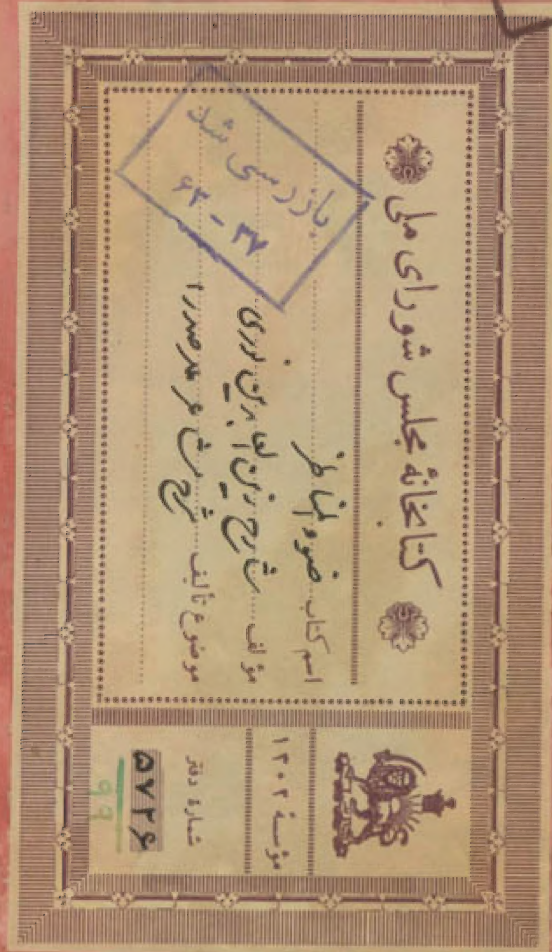 کتابخانهٔ مجلس شورای ملی
بازرسی شد
۶۳ - ۳۷
اسم کتاب ضوء المناظر
مؤلف شارح زین العابدین نوری
موضوع تألیف شرح مشاعر ملاصدرا
مؤسسهٔ ۱۳۰۲
شمارهٔ دفتر
۵۷۲۶
۹۹